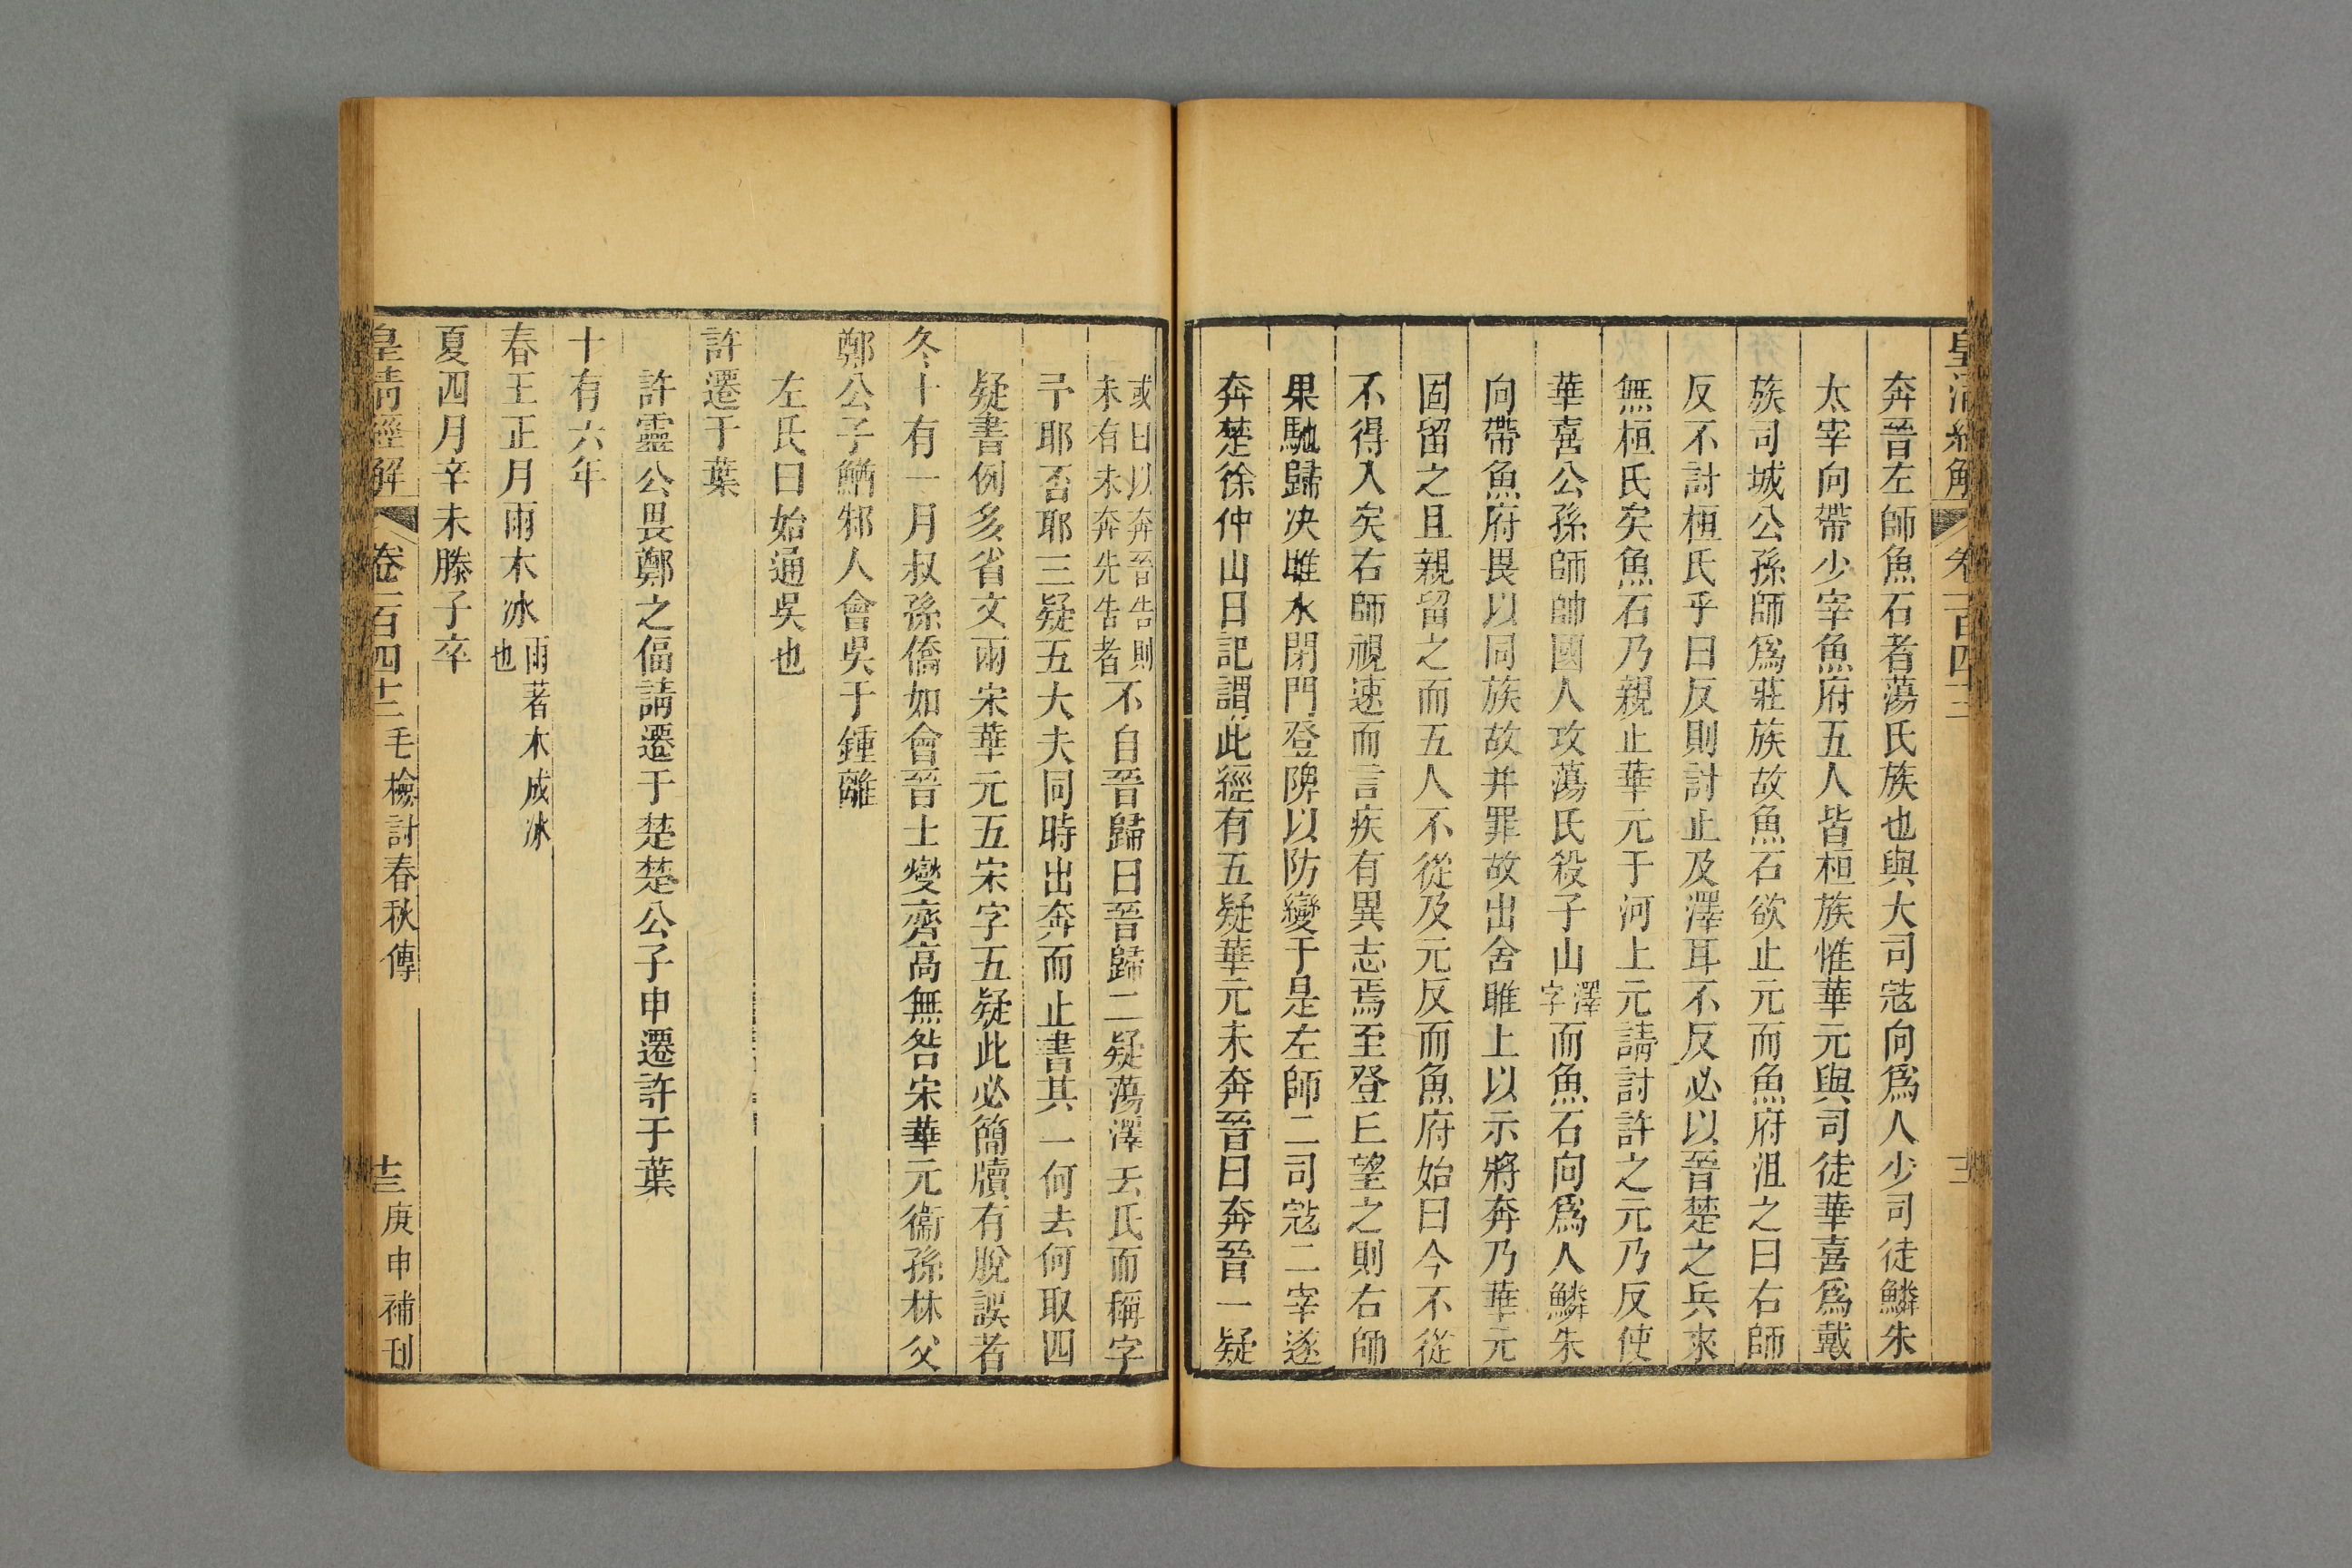 皇清經解 卷一百四十二
奔晉左師魚石者蕩氏族也與大司寇向爲人少司徒鱗朱
太宰向帶少宰魚府五人皆桓族惟華元與司徒華喜爲戴
族司城公孫師爲莊族故魚石欲止元而魚府沮之曰右師
反不討桓氏乎曰反則討止及澤耳不反必以晉楚之兵來
無桓氏矣魚石乃親止華元于河上元請討許之元乃反使
華喜公孫師帥國人攻蕩氏殺子山澤字而魚石向爲人鱗朱
向帶魚府畏以同族故并罪故出舍睢上以示將奔乃華元
固留之且親留之而五人不從及元反而魚府始曰今不從
不得入矣右師視速而言疾有異志焉至登丘望之則右師
果馳歸決睢水閉門登陴以防變于是左師二司寇二宰遂
奔楚徐仲山日記謂此經有五疑華元未奔晉曰奔晉一疑
或曰以奔晉告則未有未奔先告者不自晉歸曰晉歸二疑蕩澤去氏而稱字
予耶否耶三疑五大夫同時出奔而止書其一何去何取四
疑書例多省文兩宋華元五宋字五疑此必簡牘有脫誤者
冬十有一月叔孫僑如會晉士燮齊高無咎宋華元衞孫林父
鄭公子鰌邾人會吳于鍾離
左氏曰始通吳也
許遷于葉
許靈公畏鄭之偪請遷于楚楚公子申遷許于葉
十有六年
春王正月雨木冰雨著木成冰也
夏四月辛未滕子卒
皇清經解 卷一百四十二 毛檢討春秋傳 十三 庚申補刊